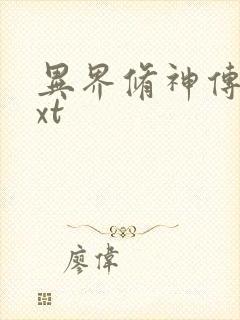 異界脩神傳
xt
廖偉